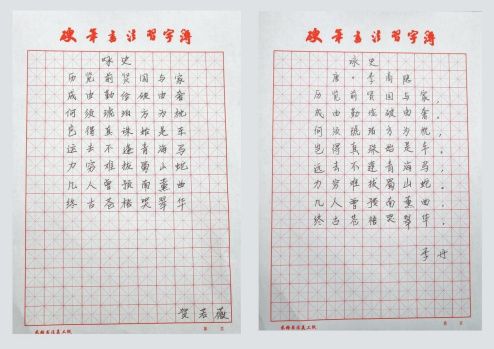 硬筆書法習字簿
咏史
历览前贤国与家
成由勤俭破由奢
何须琥珀方为枕
岂得真珠始是车
运去不逢青海马
力穷难拔蜀山蛇
几人曾预南薰曲
终古苍梧哭翠华
贺若薇
硬筆書法習字簿
咏史
唐·李商隐
历览前贤国与家,
成由勤俭破由奢。
何须琥珀方为枕,
岂得真珠始是车。
远去不逢青海马,
力穷难拔蜀山蛇。
几人曾预南薰曲,
终古苍梧哭翠华。